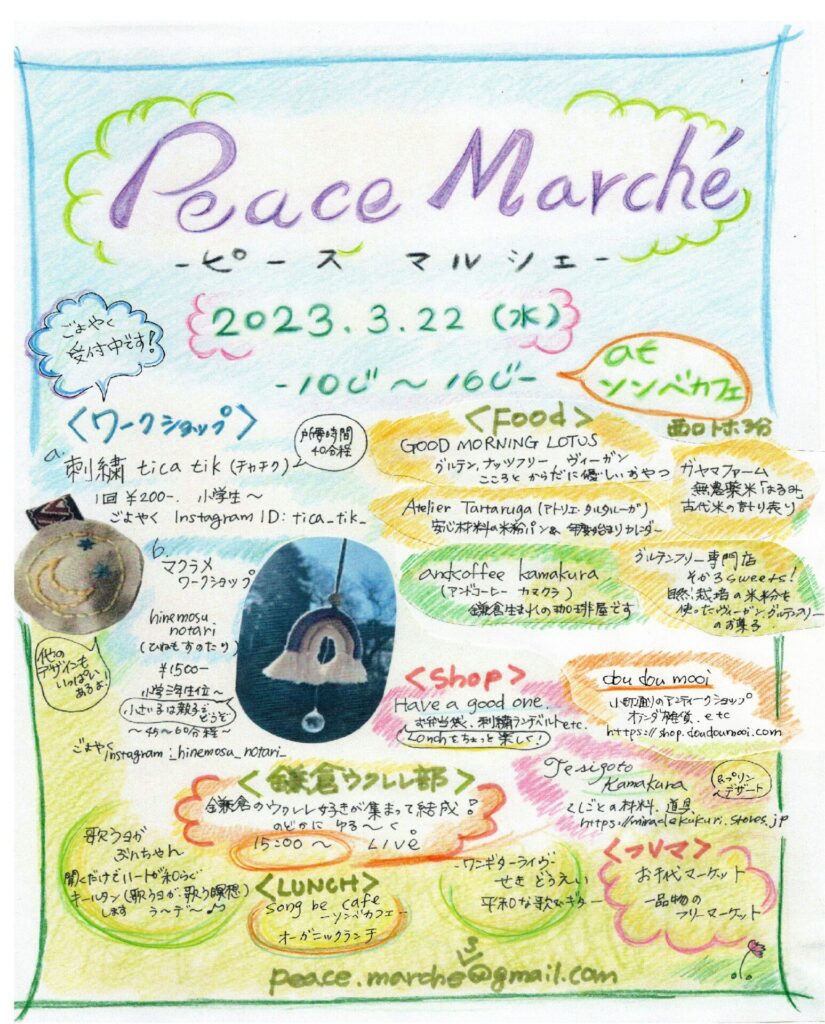 Peace Marché
-ピース マルシェ-
2023.3.22 (水)
-10じ〜16じ-
at
ソンベカフェ
西口トホ3分
ごよやく
受付中です!
<ワークショップ>
所要時間
40分程
a.
刺繍 tica tik (チャチク)
1回 ¥200-. 小学生〜
ごよやく Instagram ID: tica_tik_
他の
デザインも
いっぱい
あるよ!
b.
マクラメ
ワークショップ
hinemosu
notari
(ひねもすのたり)
¥1500-
小学3年生位〜
小さい子は親子で
どうぞ
〜45〜60分程〜
ごよやく
Instagram: _hinemosu_notari_
<Food>
GOOD MORNING LOTUS
グルテン,ナッツフリー ヴィーガン
こころと からだに優しいおやつ
Atelier Tartaruga (アトリエ・タルタルーガ)
安心材料の米粉パン& 年度始まりカレンダー
andkoffee kamakura
(アンドコーヒー カマクラ)
鎌倉生まれの珈琲屋です
ガヤマファーム
無農薬米「はるみ」
古代米の計り売り
グルテンフリー専門店
そかろsweets!
自然栽培の米粉を
使ったヴィーガン,グルテンフリー
のお菓子
<Shop>
Have a good one.
お弁当袋、刺繍ランチベルト etc.
Lunchをちょっと楽しく!
dou dou mooi
小切郵のアンティークショップ
オランダ雑貨. etc
https://shop.doudoumooi.com
Tesigoto
Kamakura
&プリン
デザート
くしごとの材料、道具
https://miraclekukuri.stores.jp
<鎌倉ウクレレ部>
鎌倉のウクレレ好きが集まって結成!
のどかに ゆる〜く。
15:00〜 Live
歌うヨガ
ぶんちゃん
聞くだけでハートが和らぐ
キールタン (歌うヨガ・歌う瞑想)
します う〜デ〜♪
<LUNCH>
song be cafe
-ソンベカフェ-
オーガニックランチ
-ワンギターライヴ-
せき どうえい
平和な歌とギター
<フリマ>
お千代マーケット
一品物の
フリーマーケット
s
peace.marche@gmail.com